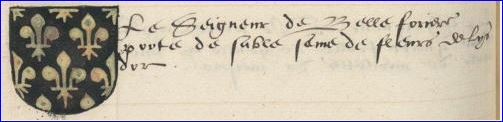 Le Seigneur de Belleforiere
porte de sable seme de fleurs de lys
dor